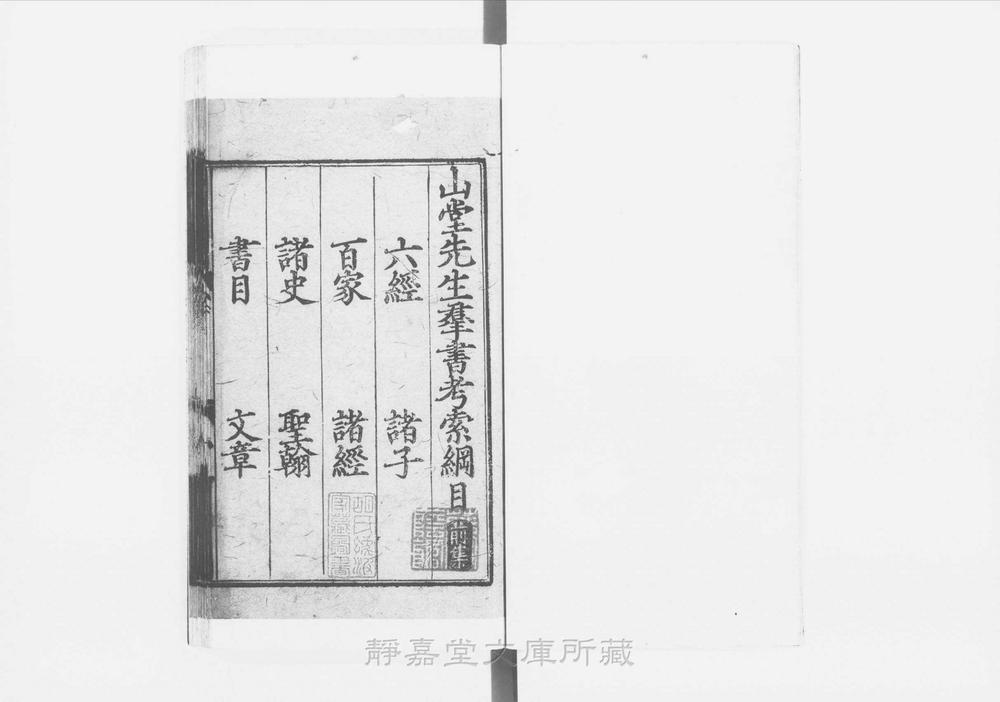 山堂先生羣書考索綱目 前集
六經 諸子
百家 諸經
諸史 聖翰
書目 文章
靜嘉堂文庫所藏